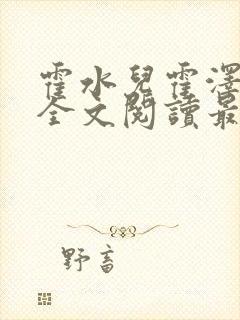 霍水兒霍澤
全文閱讀最
野畜